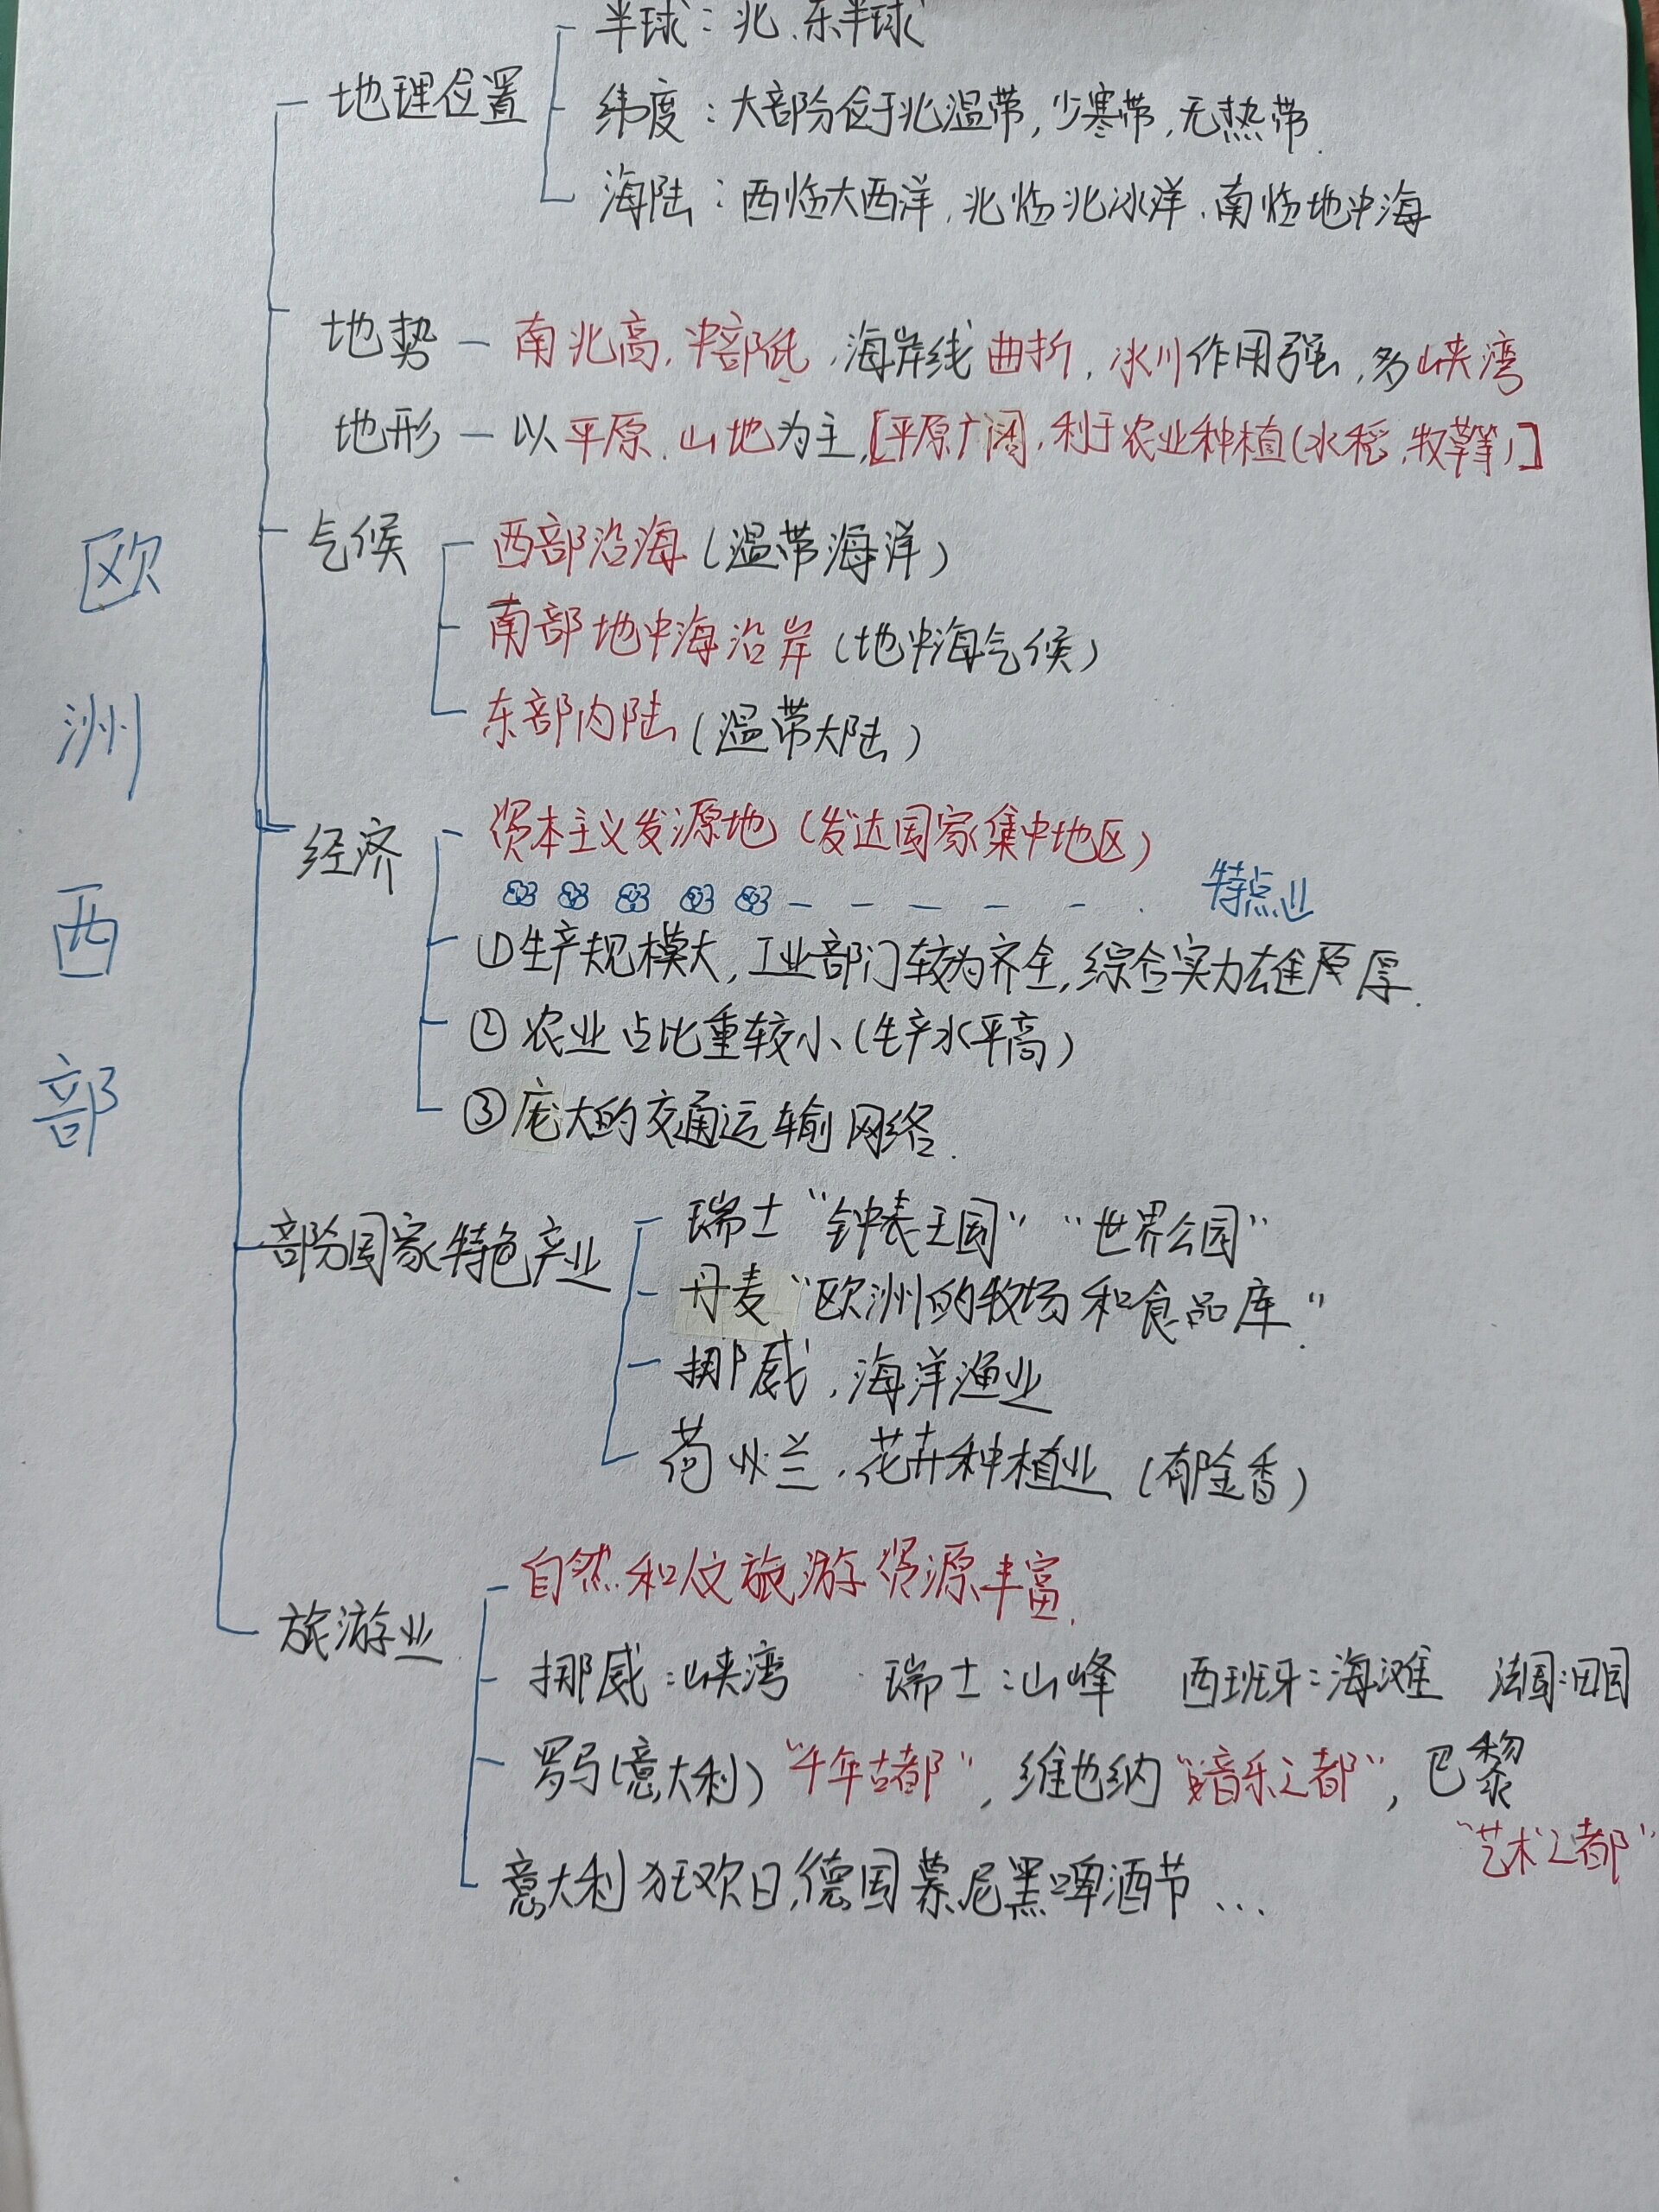 半球：北、东半球
地理位置
纬度：大部分位于北温带，少寒带，无热带．
海陆：西临大西洋，北临北冰洋，南临地中海
地势 — 南北高，中部低，海岸线曲折，冰川作用强，多峡湾
地形 — 以平原、山地为主，[平原广阔，利于农业种植(水稻，牧草等)]
气候
西部沿海(温带海洋)
南部地中海沿岸(地中海气候)
东部内陆(温带大陆)
欧洲西部
经济
资本主义发源地(发达国家集中地区)
特点
①生产规模大，工业部门较为齐全，综合实力雄厚．
②农业占比重较小(生产水平高)
③庞大的交通运输网络．
部分国家特色产业
瑞士“钟表王国”“世界公园”
丹麦“欧洲的牧场和食品库”
挪威，海洋渔业
荷兰，花卉种植业(郁金香)
自然和文旅游资源丰富．
旅游业
挪威：峡湾 瑞士：山峰 西班牙：海滩 法国：田园
罗马(意大利)“千年古都”，维也纳“音乐之都”，巴黎
“艺术之都”
意大利狂欢日，德国慕尼黑啤酒节…